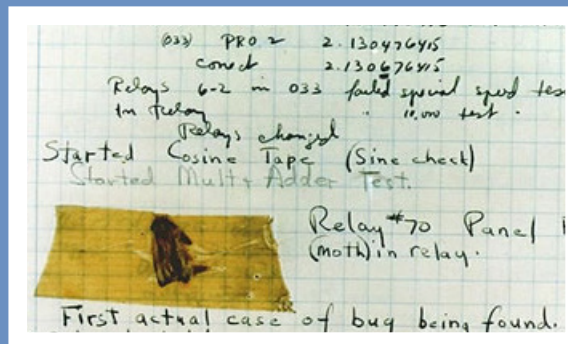 (033) PRO 2 2.130476415
conect 2.130676415
Relays 6-2 in 033 failed special speed tes
In Relay " 10.000 test .
Relays changed
Started Cosine Tape (Sine check)
Started Mult + Adder Test.
Relay #70 Panel
(moth) in relay.
First actual case of bug being found.